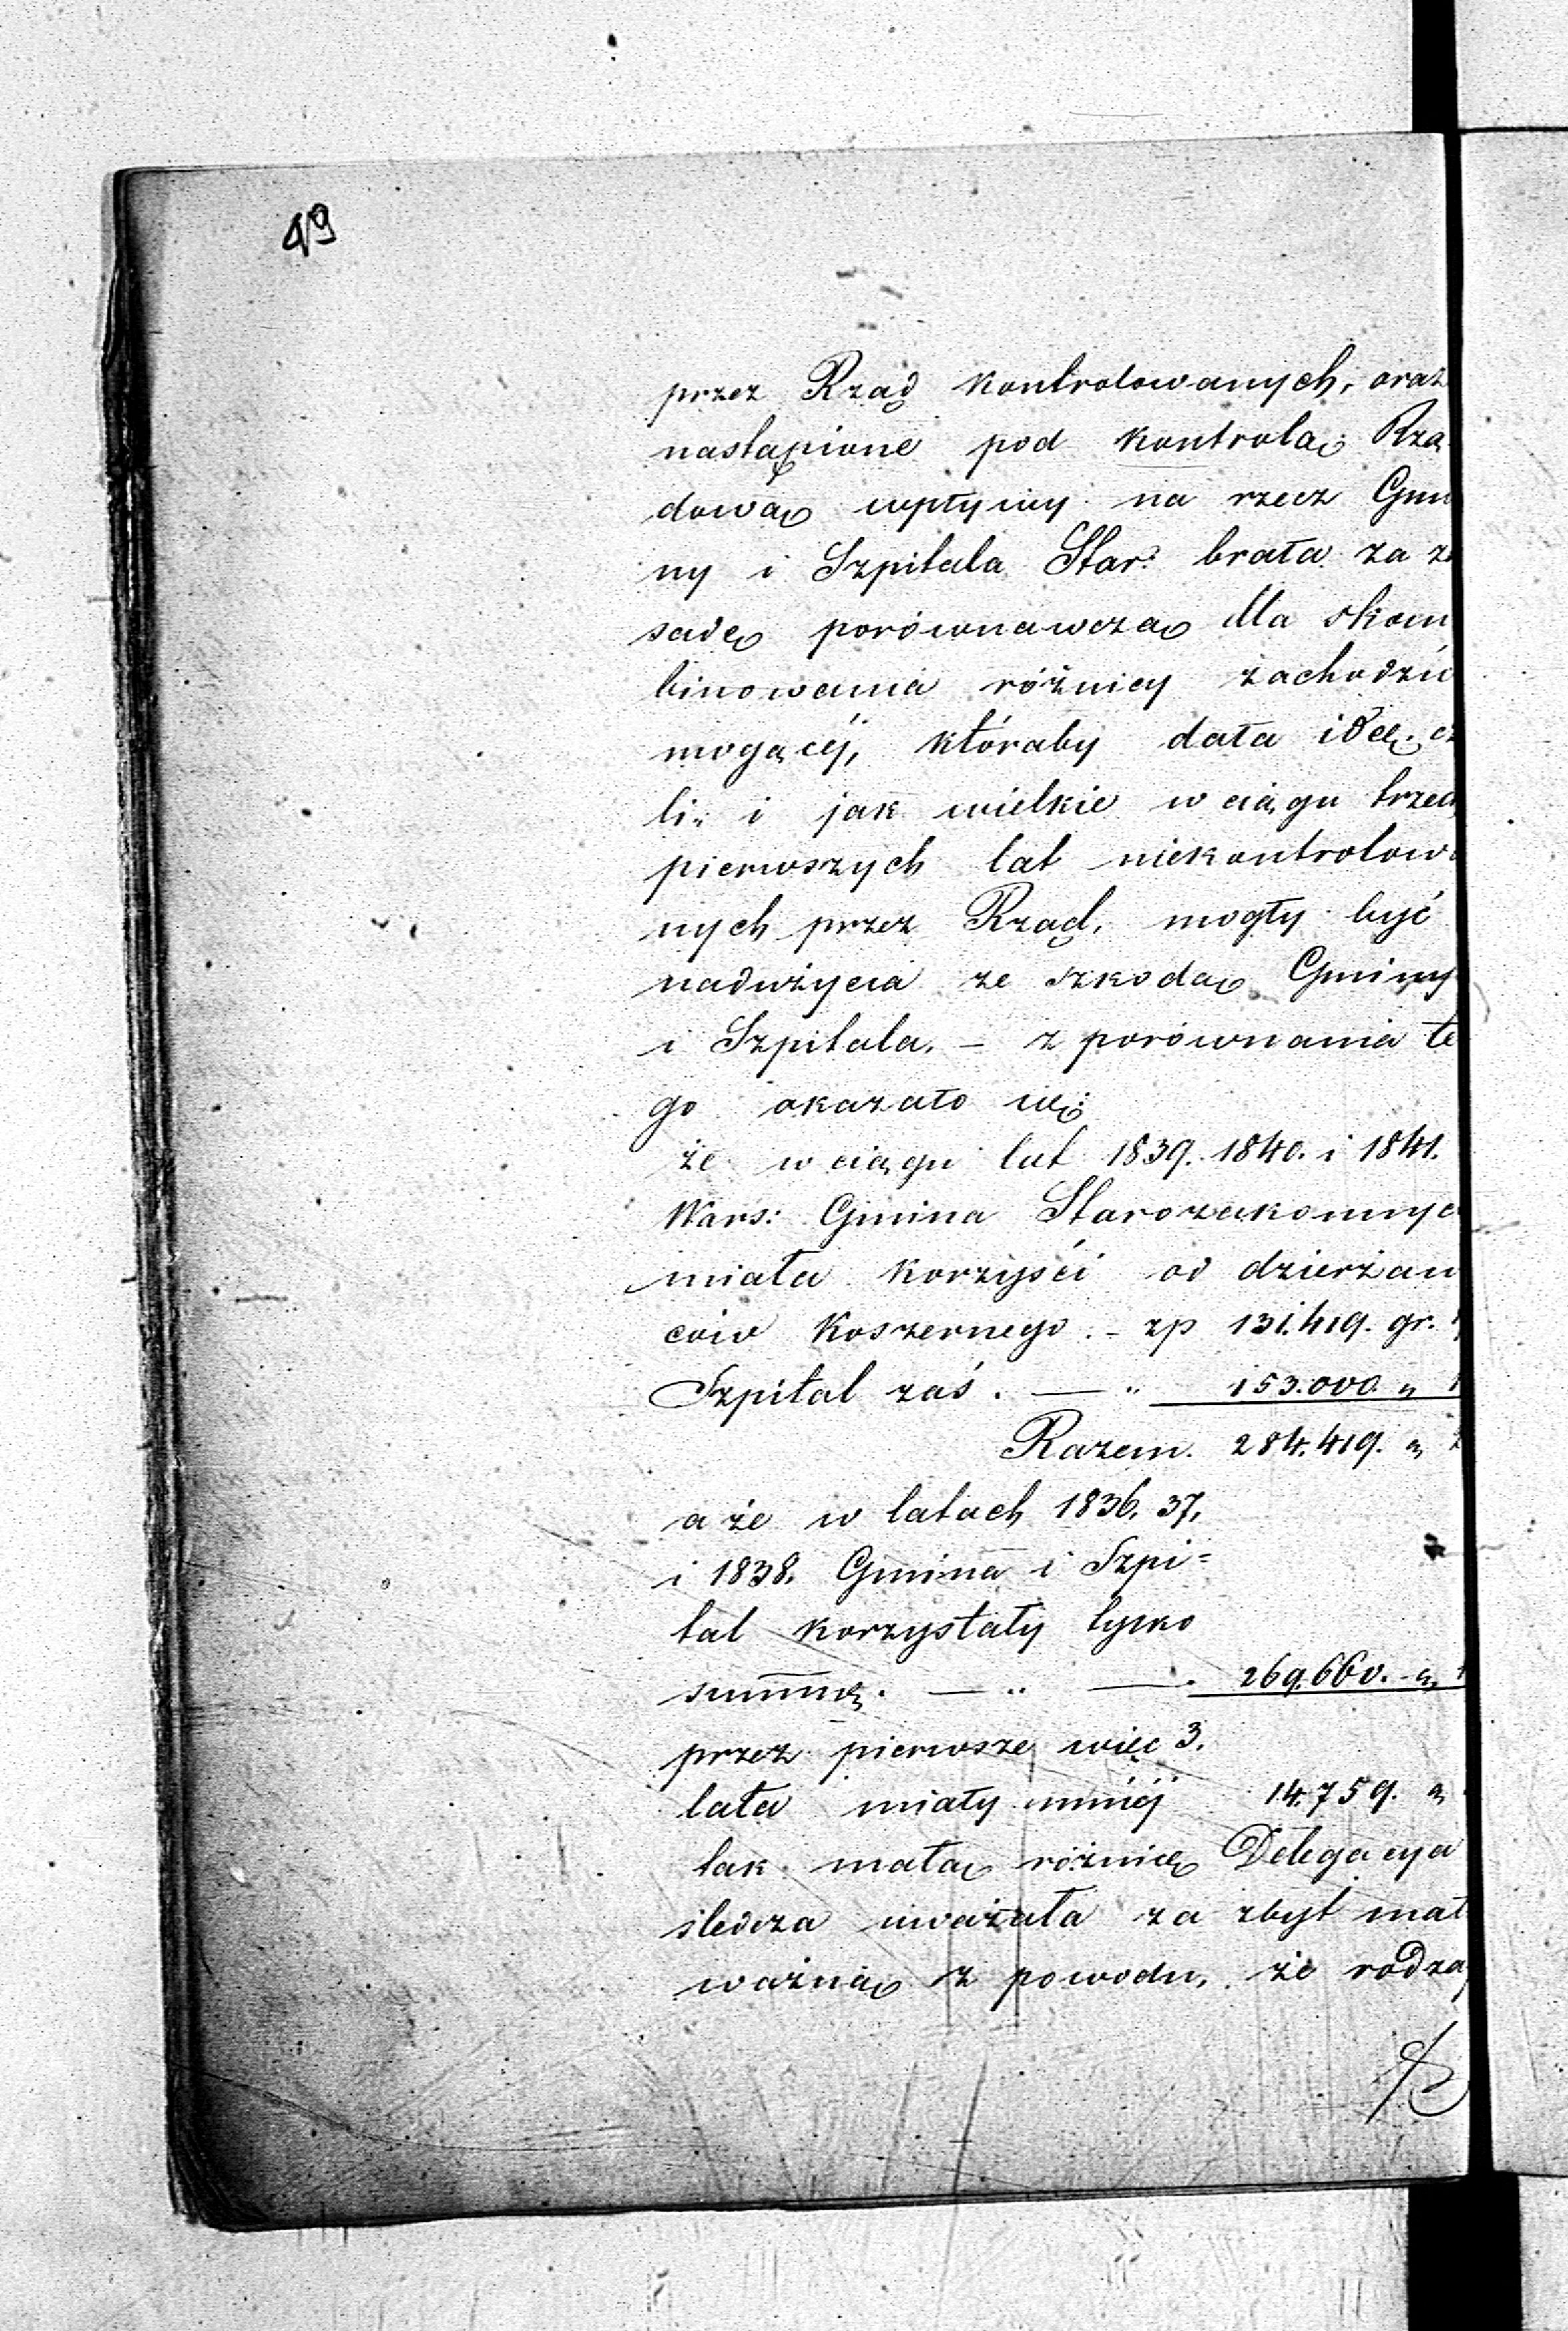 49
przez Rząd kontrolowanych, oraz
nastąpione pod kontrolą Rzą
dową wpływy na rzecz Gmi
ny i Szpitala Star: brała za za
sadę porównawczą dla skom
binowania różnicy zachodzić
mogącéj, któraby dała ideę cz
li i jak wielkie w ciągu trzech
pierwszych lat niekontrolowa
nych przez Rząd, mogły być
nadużycia ze szkodą Gminy
i Szpitala. – z porównania te
go okazało się:
że w ciągu lat 1839. 1840. i 1841.
Wars: Gmina Starozakonnyc
miała korzyści od dzierżaw
ców Koszernego. – zp 131.419. gr.
Szpital zaś. — " 153.000. "
Razem. 284.419. "
a że w latach 1836. 37.
i 1838. Gmina i Szpi=
tal korzystały tylko
summę. — " — 269.660. "
przez pierwsze więc 3.
lata miały mniéj 14.759. "
tak małą różnicę Delegacya
śledcza uważała za zbyt mał
ważną z powodu, że rodza